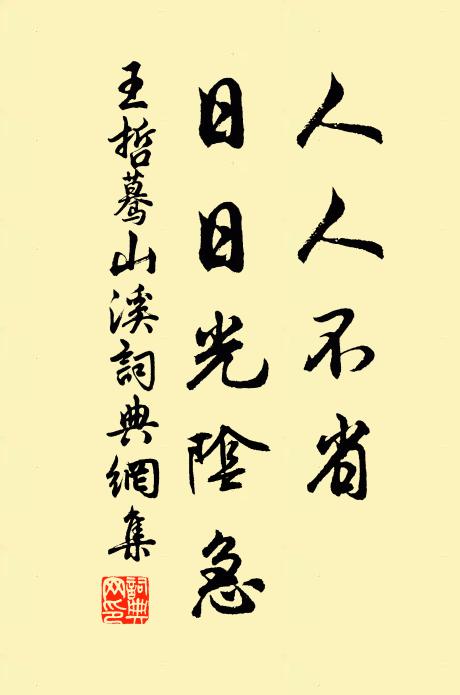 人人不省
日日光陰急
王哲驀山溪詞典網集
詞典網印